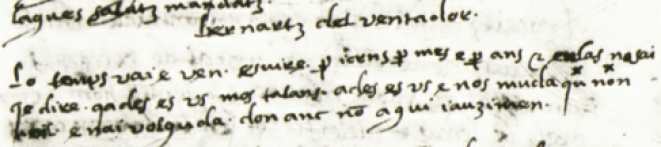 laques salatz mandatz.
bernartz del ventador.
Lo temps vai e ven. e vire. p iorns p mes e p ans z eu las no sai
qe dire. qades es us mos talans. ades es us e nos muda qu non
voil. e nai volguda. don anc nō aqui iauzimen.